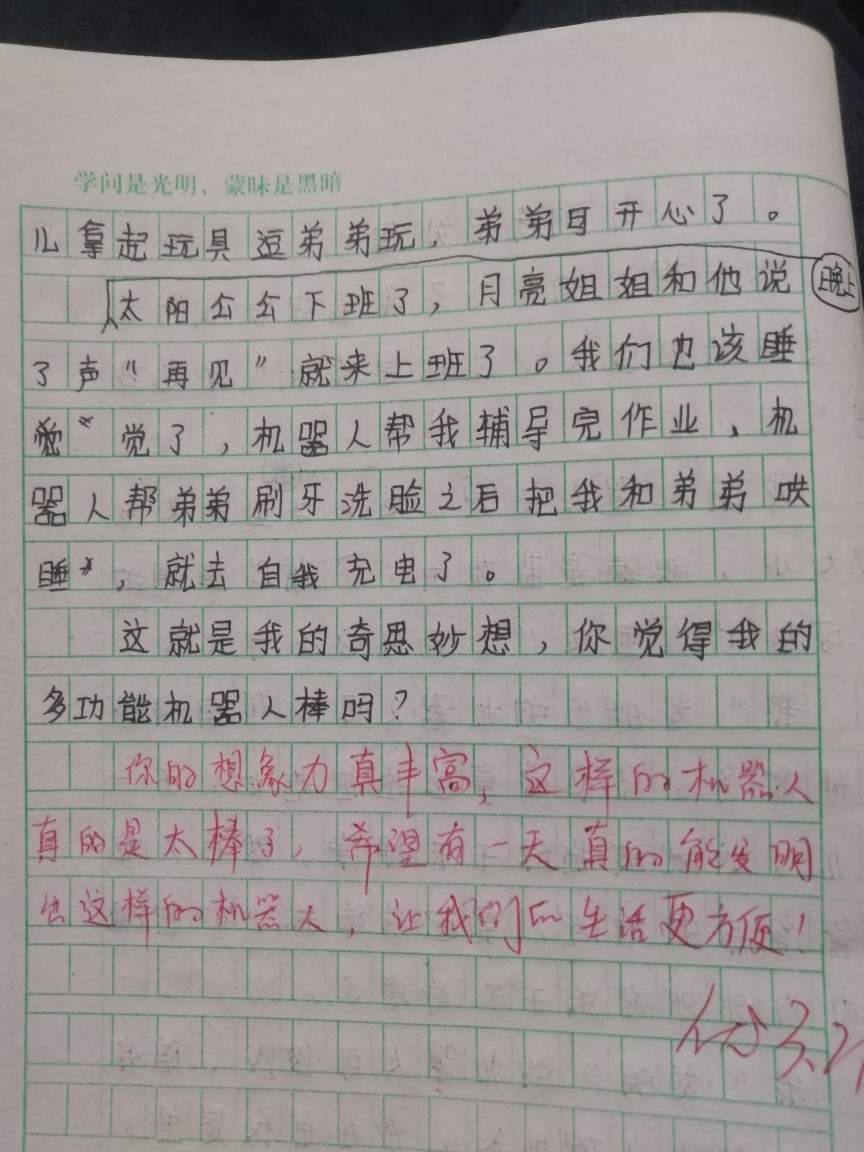 学问是光明，蒙昧是黑暗
儿拿起玩具逗弟弟玩，弟弟可开心了。
晚上
太阳公公下班了，月亮姐姐和他说
了声“再见”就来上班了。我们也该睡
觉了，机器人帮我辅导完作业，机
器人帮弟弟刷牙洗脸之后把我和弟弟哄
睡，就去自我充电了。
这就是我的奇思妙想，你觉得我的
多功能机器人棒吗？
你的想象力真丰富，这样的机器人
真的是太棒了，希望有一天真的能发明
出这样的机器人，让我们的生活更方便！
3.21